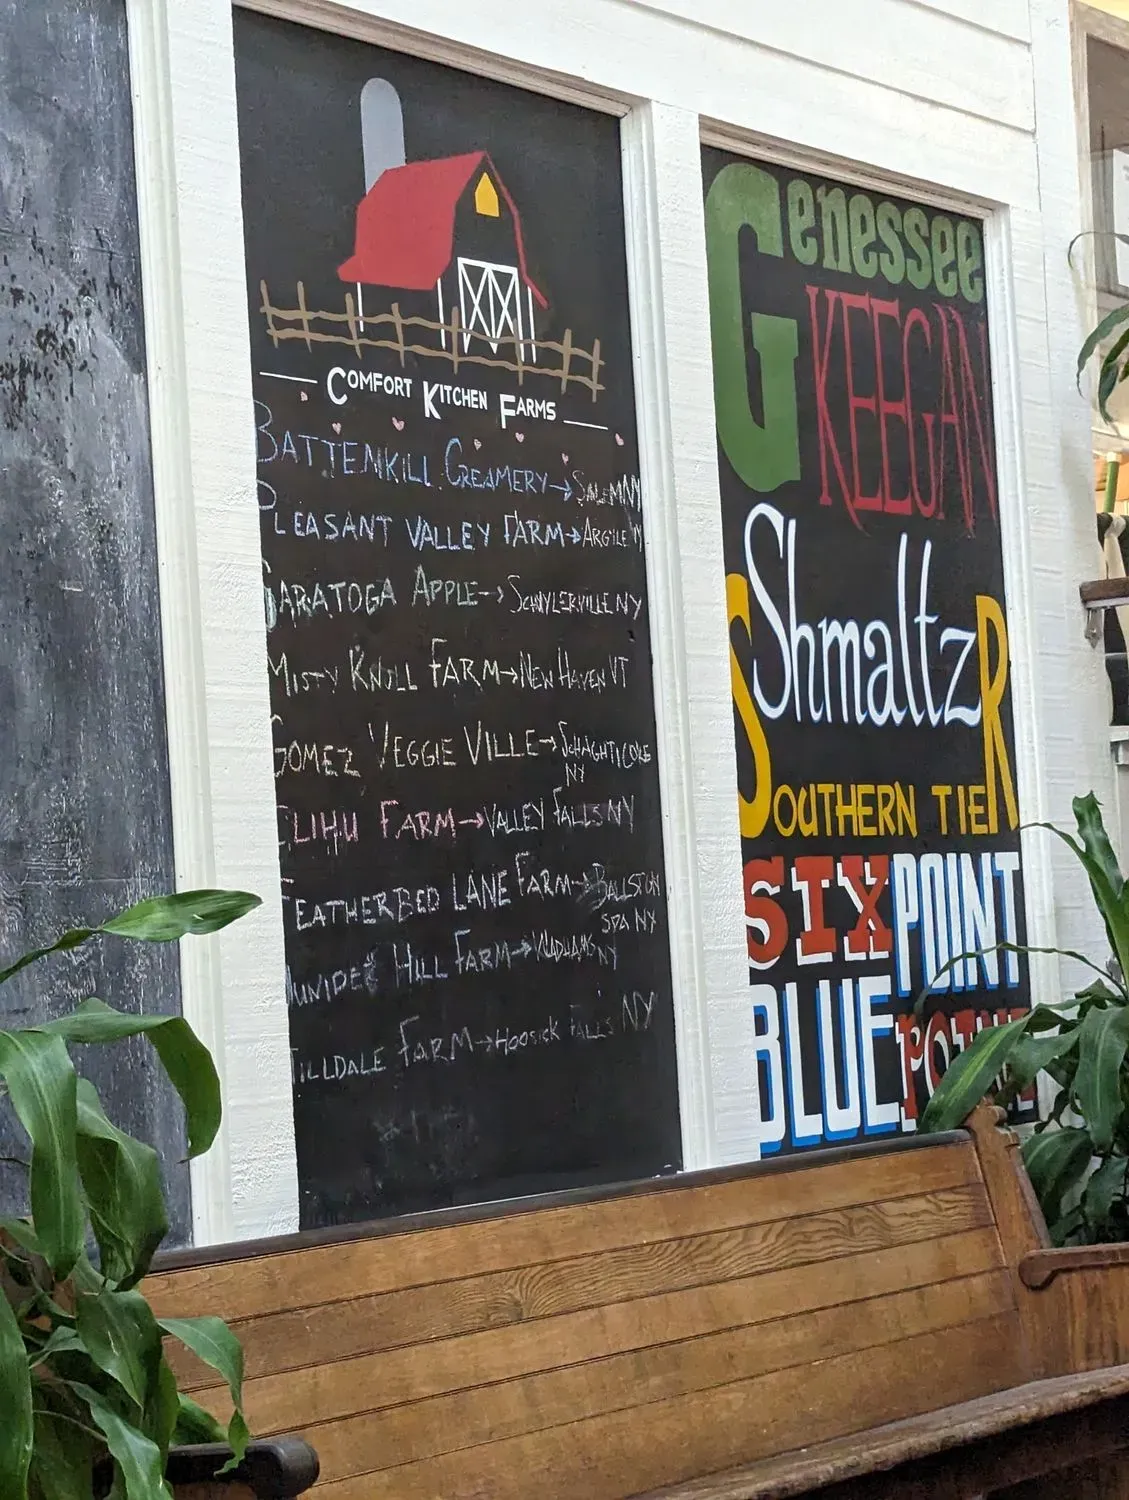 COMFORT KITCHEN FARMS
BATTENKILL CREAMERY→SALEM NY
PLEASANT VALLEY FARM→ARGYLE NY
SARATOGA APPLE→SCHUYLERVILLE NY
MISTY KNOLL FARM→NEW HAVEN VT
GOMEZ VEGGIE VILLE→SCHAGHTICOKE
NY
ELIHU FARM→VALLEY FALLS NY
FEATHERBED LANE FARM→BALLSTON
SPA NY
JUNIPER HILL FARM→WADHAMS NY
TILLDALE FARM→HOOSICK FALLS NY
Genessee
KEEGAN
Shmaltz
SOUTHERN TIER
SIX POINT
BLUE POINT